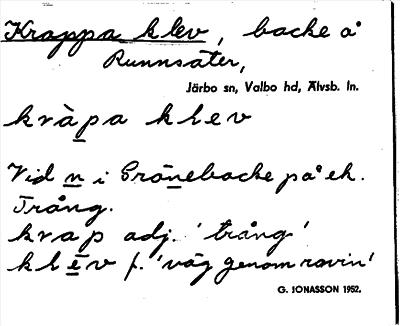 Krappa klev, backe å
Runnsäter,
Järbo sn, Valbo hd, Älvsb. ln.
kràpa klev
Vid n i Grönebacke på ek.
Trång.
krap adj. 'trång'
klev f. 'väg genom ravin'
G. JONASSON 1952.